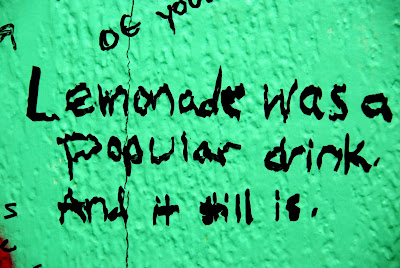 of you
Lemonade was a
popular drink.
And it still is.
s